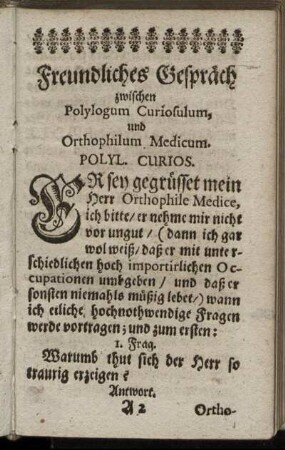 Freundliches Gespräch
zwischen
Polylogum Curiosulum,
und
Orthophilum Medicum.
POLYL. CURIOS.
ER sey gegrüsset mein
Herr Orthophile Medice,
ich bitte/ er nehme mir nicht
vor ungut/ (dann ich gar
wol weiß/ daß er mit unter-
schiedlichen hoch importirlichen Oc-
cupationen umbgeben/ und daß er
sonsten niemahls müßig lebet/) wann
ich etliche hochnothwendige Fragen
werde vortragen; und zum ersten:
1. Frag.
Warumb thut sich der Herr so
traurig erzeigen?
Antwort.
A 2 Ortho-